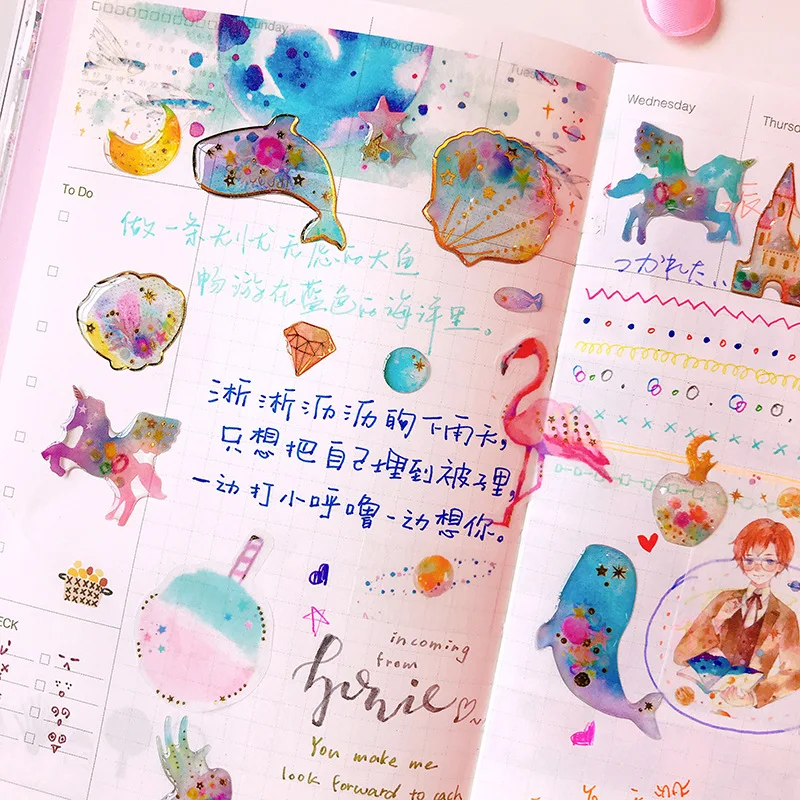 Sunday
Monday
Tues
Wednesday
Thursd
To Do
做一条无忧无虑的大鱼
畅游在蓝色的海洋里。
つかれた..
淅淅沥沥的下雨天,
只想把自己埋到被子里,
一边打小呼噜一边想你。
incoming
from
honie
You make me
look forward to each
ECK